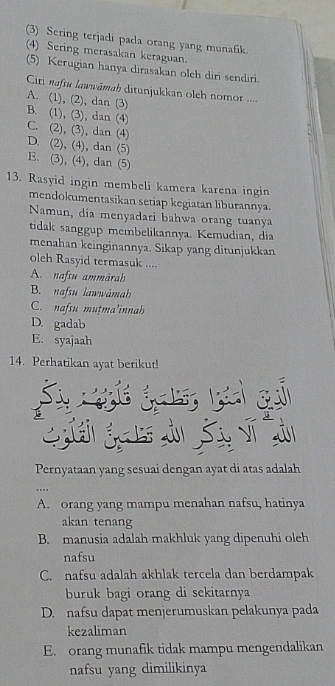 (3) Sering terjadi pada orang yang munafik.
(4) Sering merasakan keraguan.
(5) Kerugian hanya dirasakan oleh diri sendiri.
Ciri nafsu lawwāmah ditunjukkan oleh nomor ....
A. (1), (2), dan (3)
B. (1), (3), dan (4)
C. (2), (3), dan (4)
D. (2), (4), dan (5)
E. (3), (4), dan (5)
13. Rasyid ingin membeli kamera karena ingin
mendokumentasikan setiap kegiatan liburannya.
Namun, dia menyadari bahwa orang tuanya
tidak sanggup membelikannya. Kemudian, dia
menahan keinginannya. Sikap yang ditunjukkan
oleh Rasyid termasuk ....
A. nafsu ammārah
B. nafsu lawwāmah
C. nafsu muṭma'innah
D. gadab
E. syajaah
14. Perhatikan ayat berikut!
الَّذِيْنَ اٰمَنُوْا وَتَطْمَىِٕنُّ قُلُوْبُهُمْ بِذِكْرِ
اللّٰهِ ۗ اَلَا بِذِكْرِ اللّٰهِ تَطْمَىِٕنُّ الْقُلُوْبُ
Pernyataan yang sesuai dengan ayat di atas adalah
....
A. orang yang mampu menahan nafsu, hatinya
akan tenang
B. manusia adalah makhluk yang dipenuhi oleh
nafsu
C. nafsu adalah akhlak tercela dan berdampak
buruk bagi orang di sekitarnya
D. nafsu dapat menjerumuskan pelakunya pada
kezaliman
E. orang munafik tidak mampu mengendalikan
nafsu yang dimilikinya